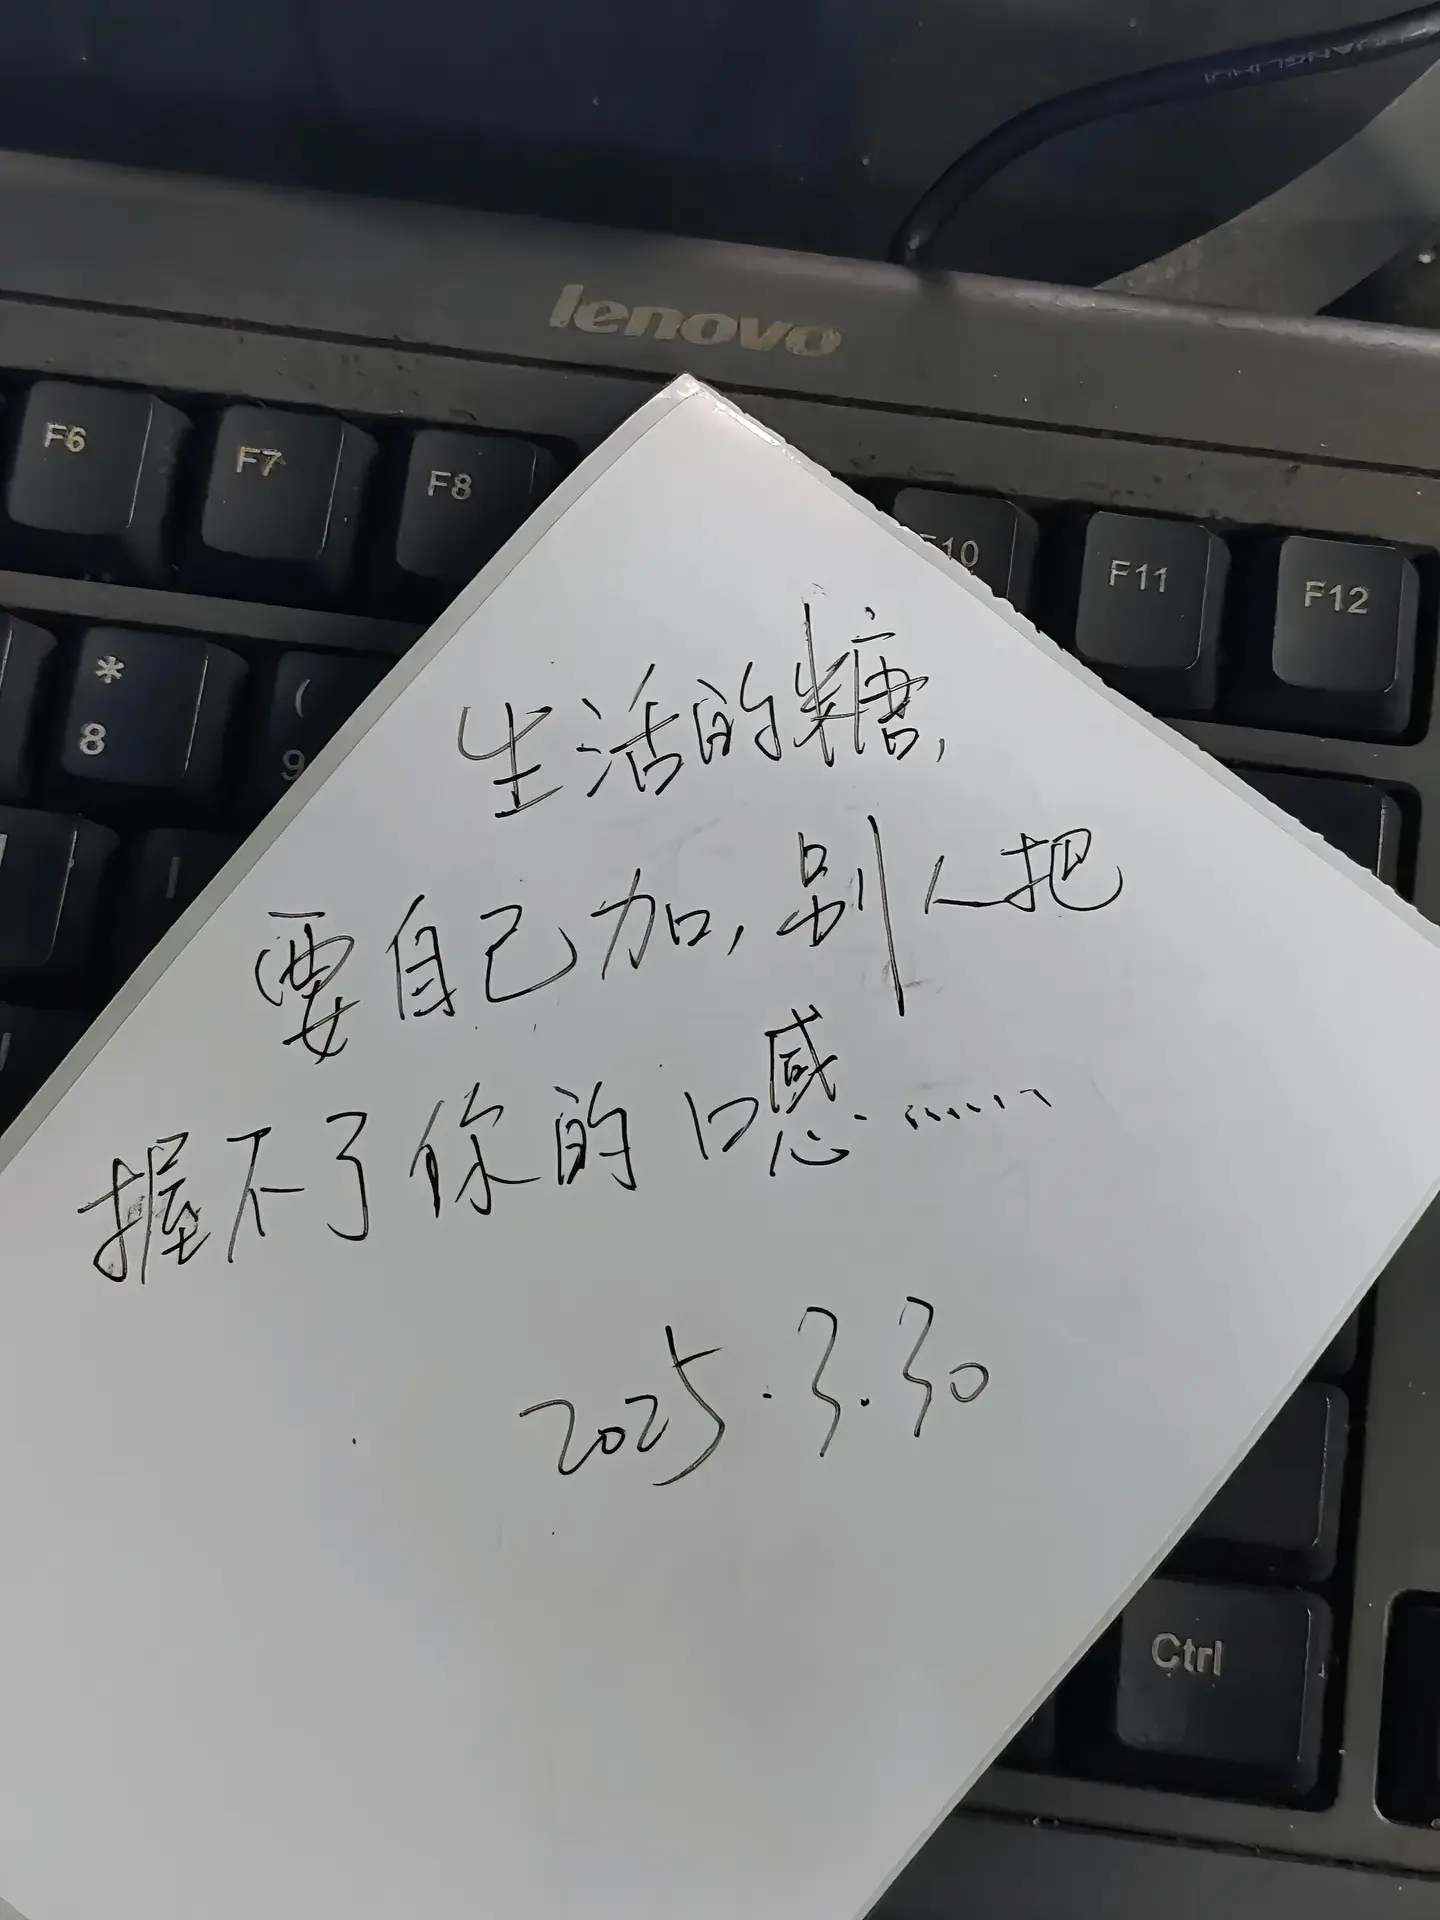 UANGLIHUI
lenovo
F6 F7 F8 F10 F11 F12
* (
8 9
生活的糖,
要自己加,别人把
握不了你的口感……
2025.3.30
Ctrl